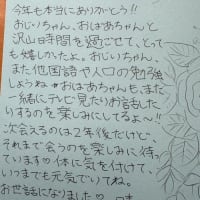 今年も本当にありがとう!!
おじいちゃん、おばあちゃんと
沢山時間を過ごせて、とって
も嬉しかったよ。おじいちゃん、
また他国語や人口の勉強
しようね。おばあちゃんも、また
一緒にテレビ見たりお話した
りするのを楽しみにしてるよ〜!!
次会えるのは2年後だけど、
それまで会うのを楽しみに待っ
ています♡体に気を付けて、
いつまでも元気でいてね。
お世話になりました♡